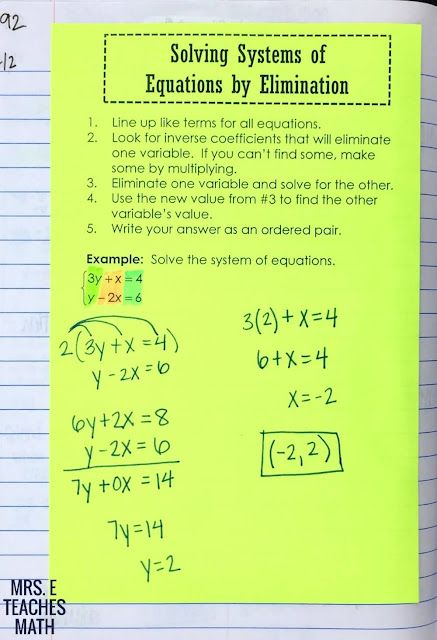 92
-/2
Solving Systems of
Equations by Elimination
1. Line up like terms for all equations.
2. Look for inverse coefficients that will eliminate
one variable. If you can't find some, make
some by multiplying.
3. Eliminate one variable and solve for the other.
4. Use the new value from #3 to find the other
variable's value.
5. Write your answer as an ordered pair.
Example: Solve the system of equations.
3y + x = 4
y - 2x = 6
2(3y+x=4)
y-2x=6
6y+2x=8
y-2x=6
7y+0x=14
7y=14
y=2
3(2)+x=4
6+x=4
x=-2
(-2,2)
MRS. E
TEACHES
MATH